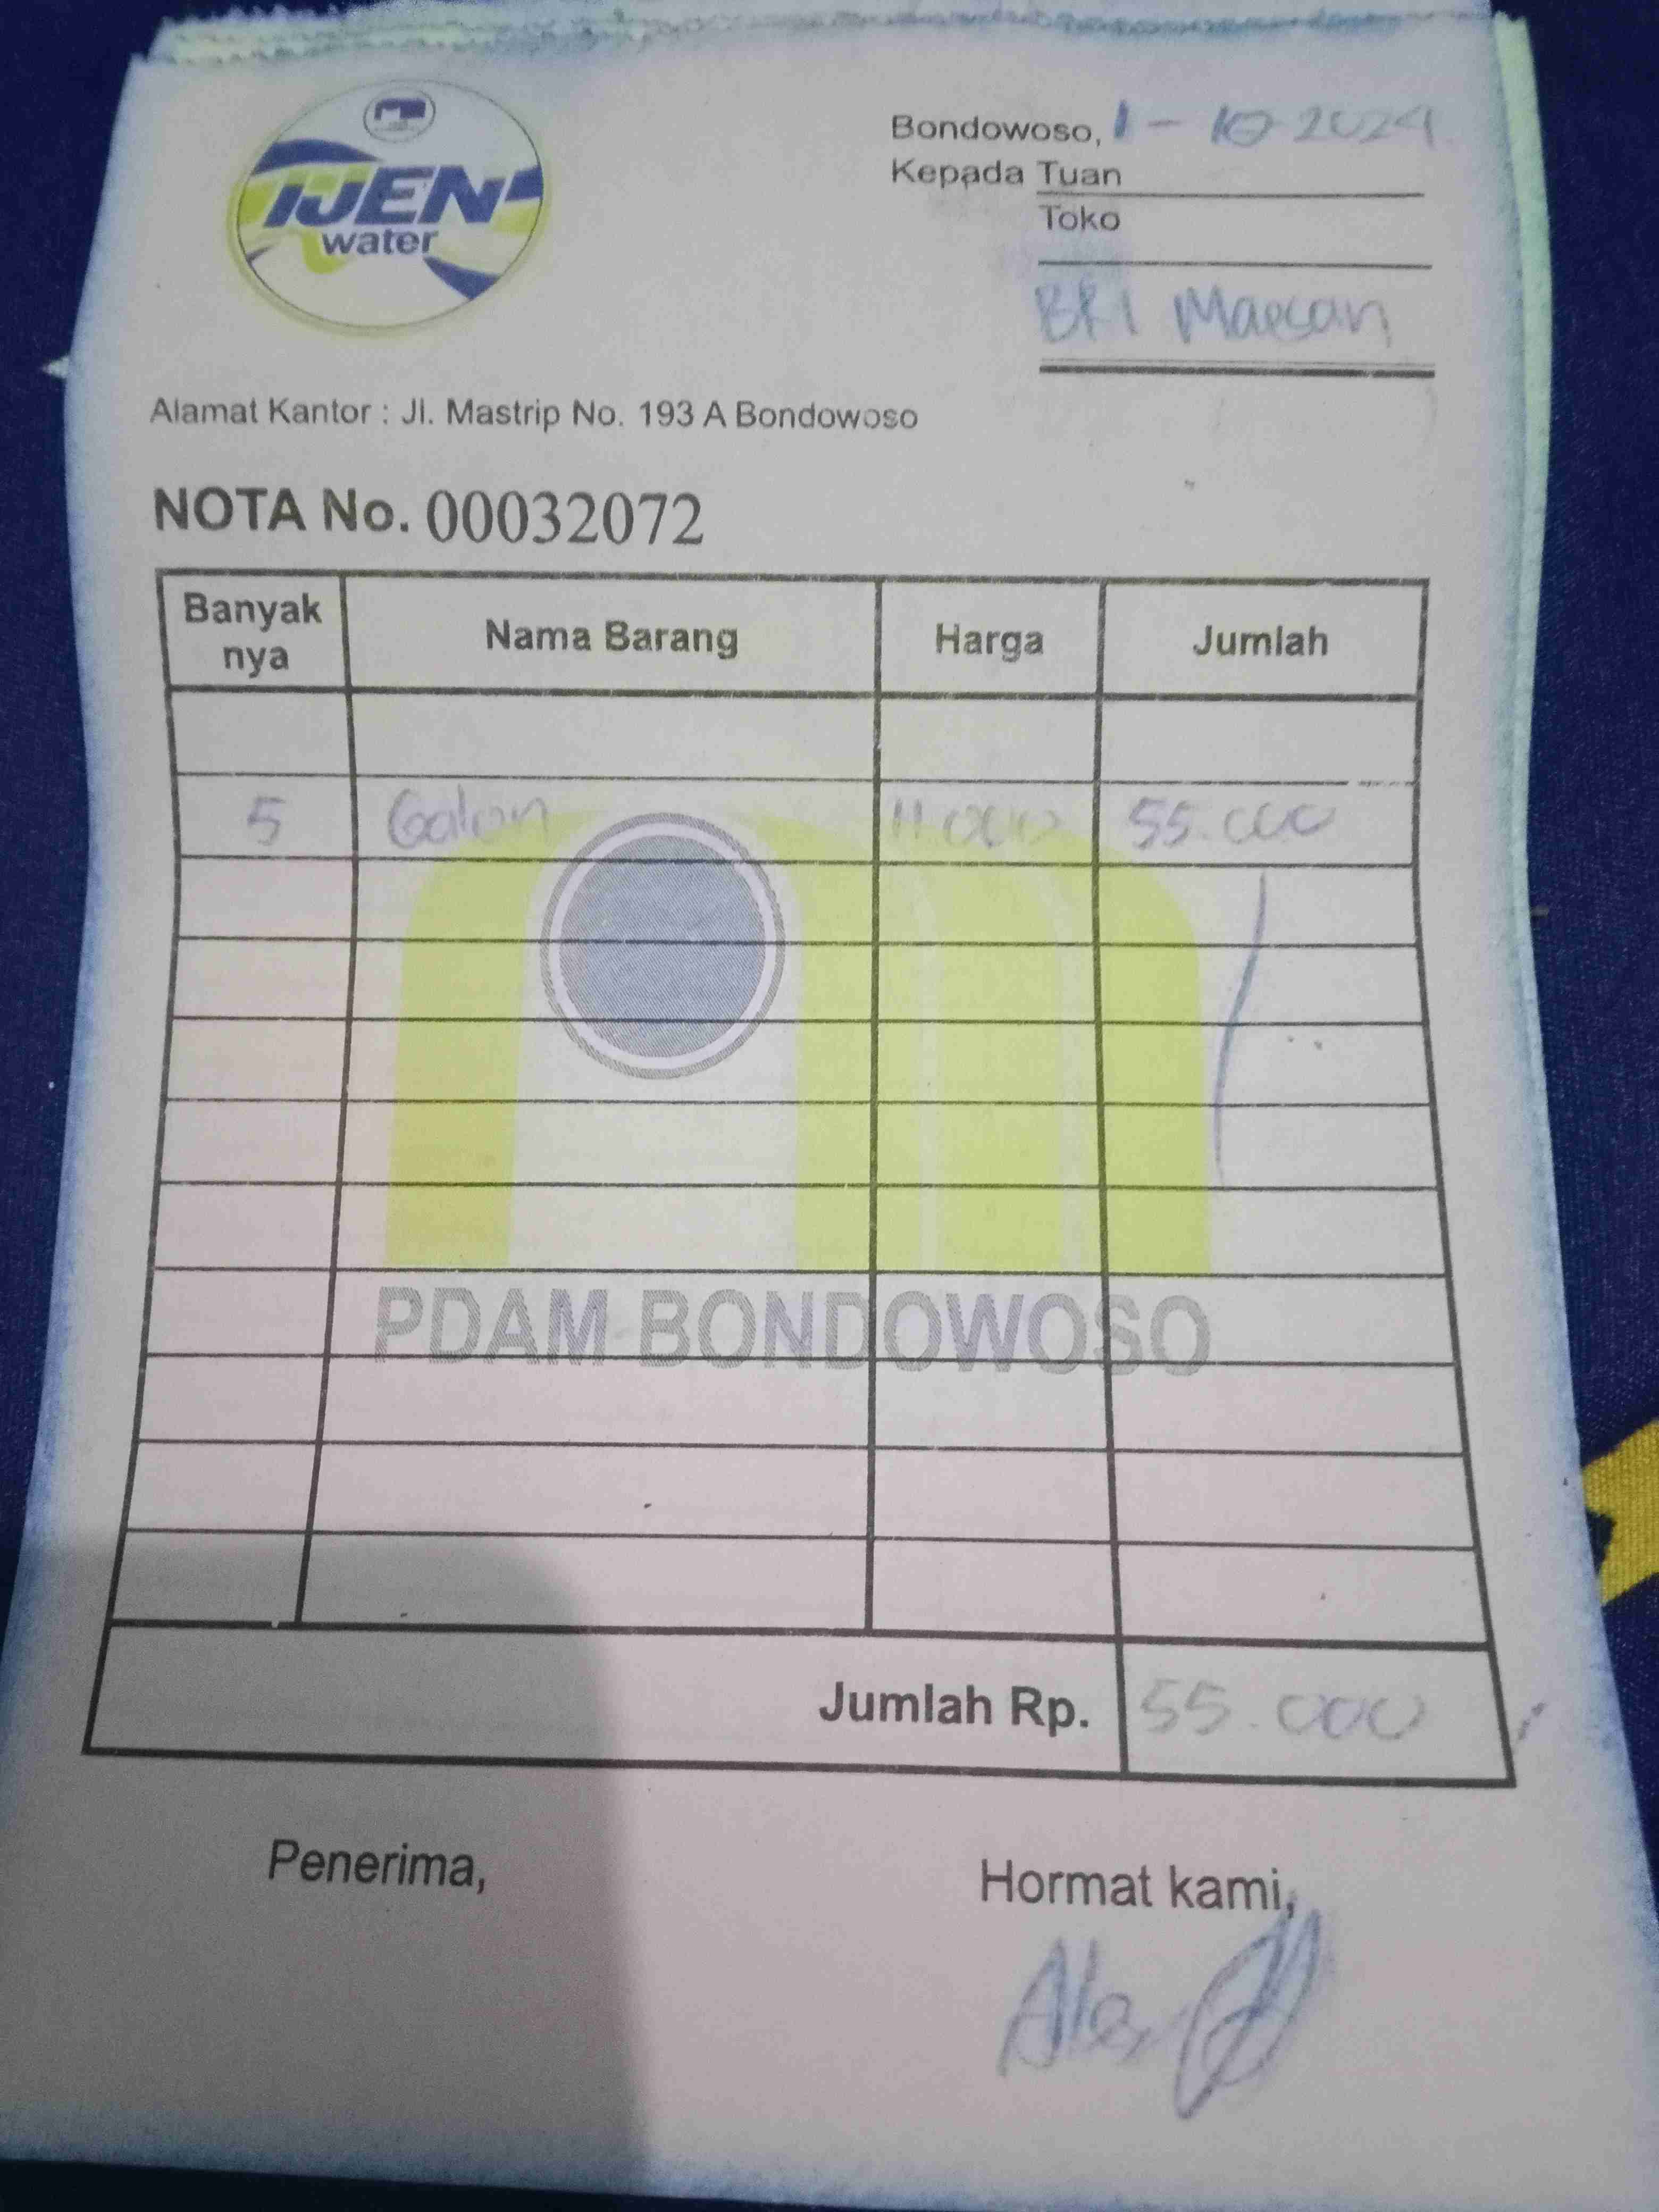 IJEN
water
Bondowoso, 1 - 10 2024
Kepada Tuan
Toko
BRI Maesan
Alamat Kantor : Jl. Mastrip No. 193 A Bondowoso
NOTA No. 00032072
Banyak nya Nama Barang Harga Jumlah
5 Galon 11.000 55.000
PDAM BONDOWOSO
Jumlah Rp. 55.000
Penerima, Hormat kami,